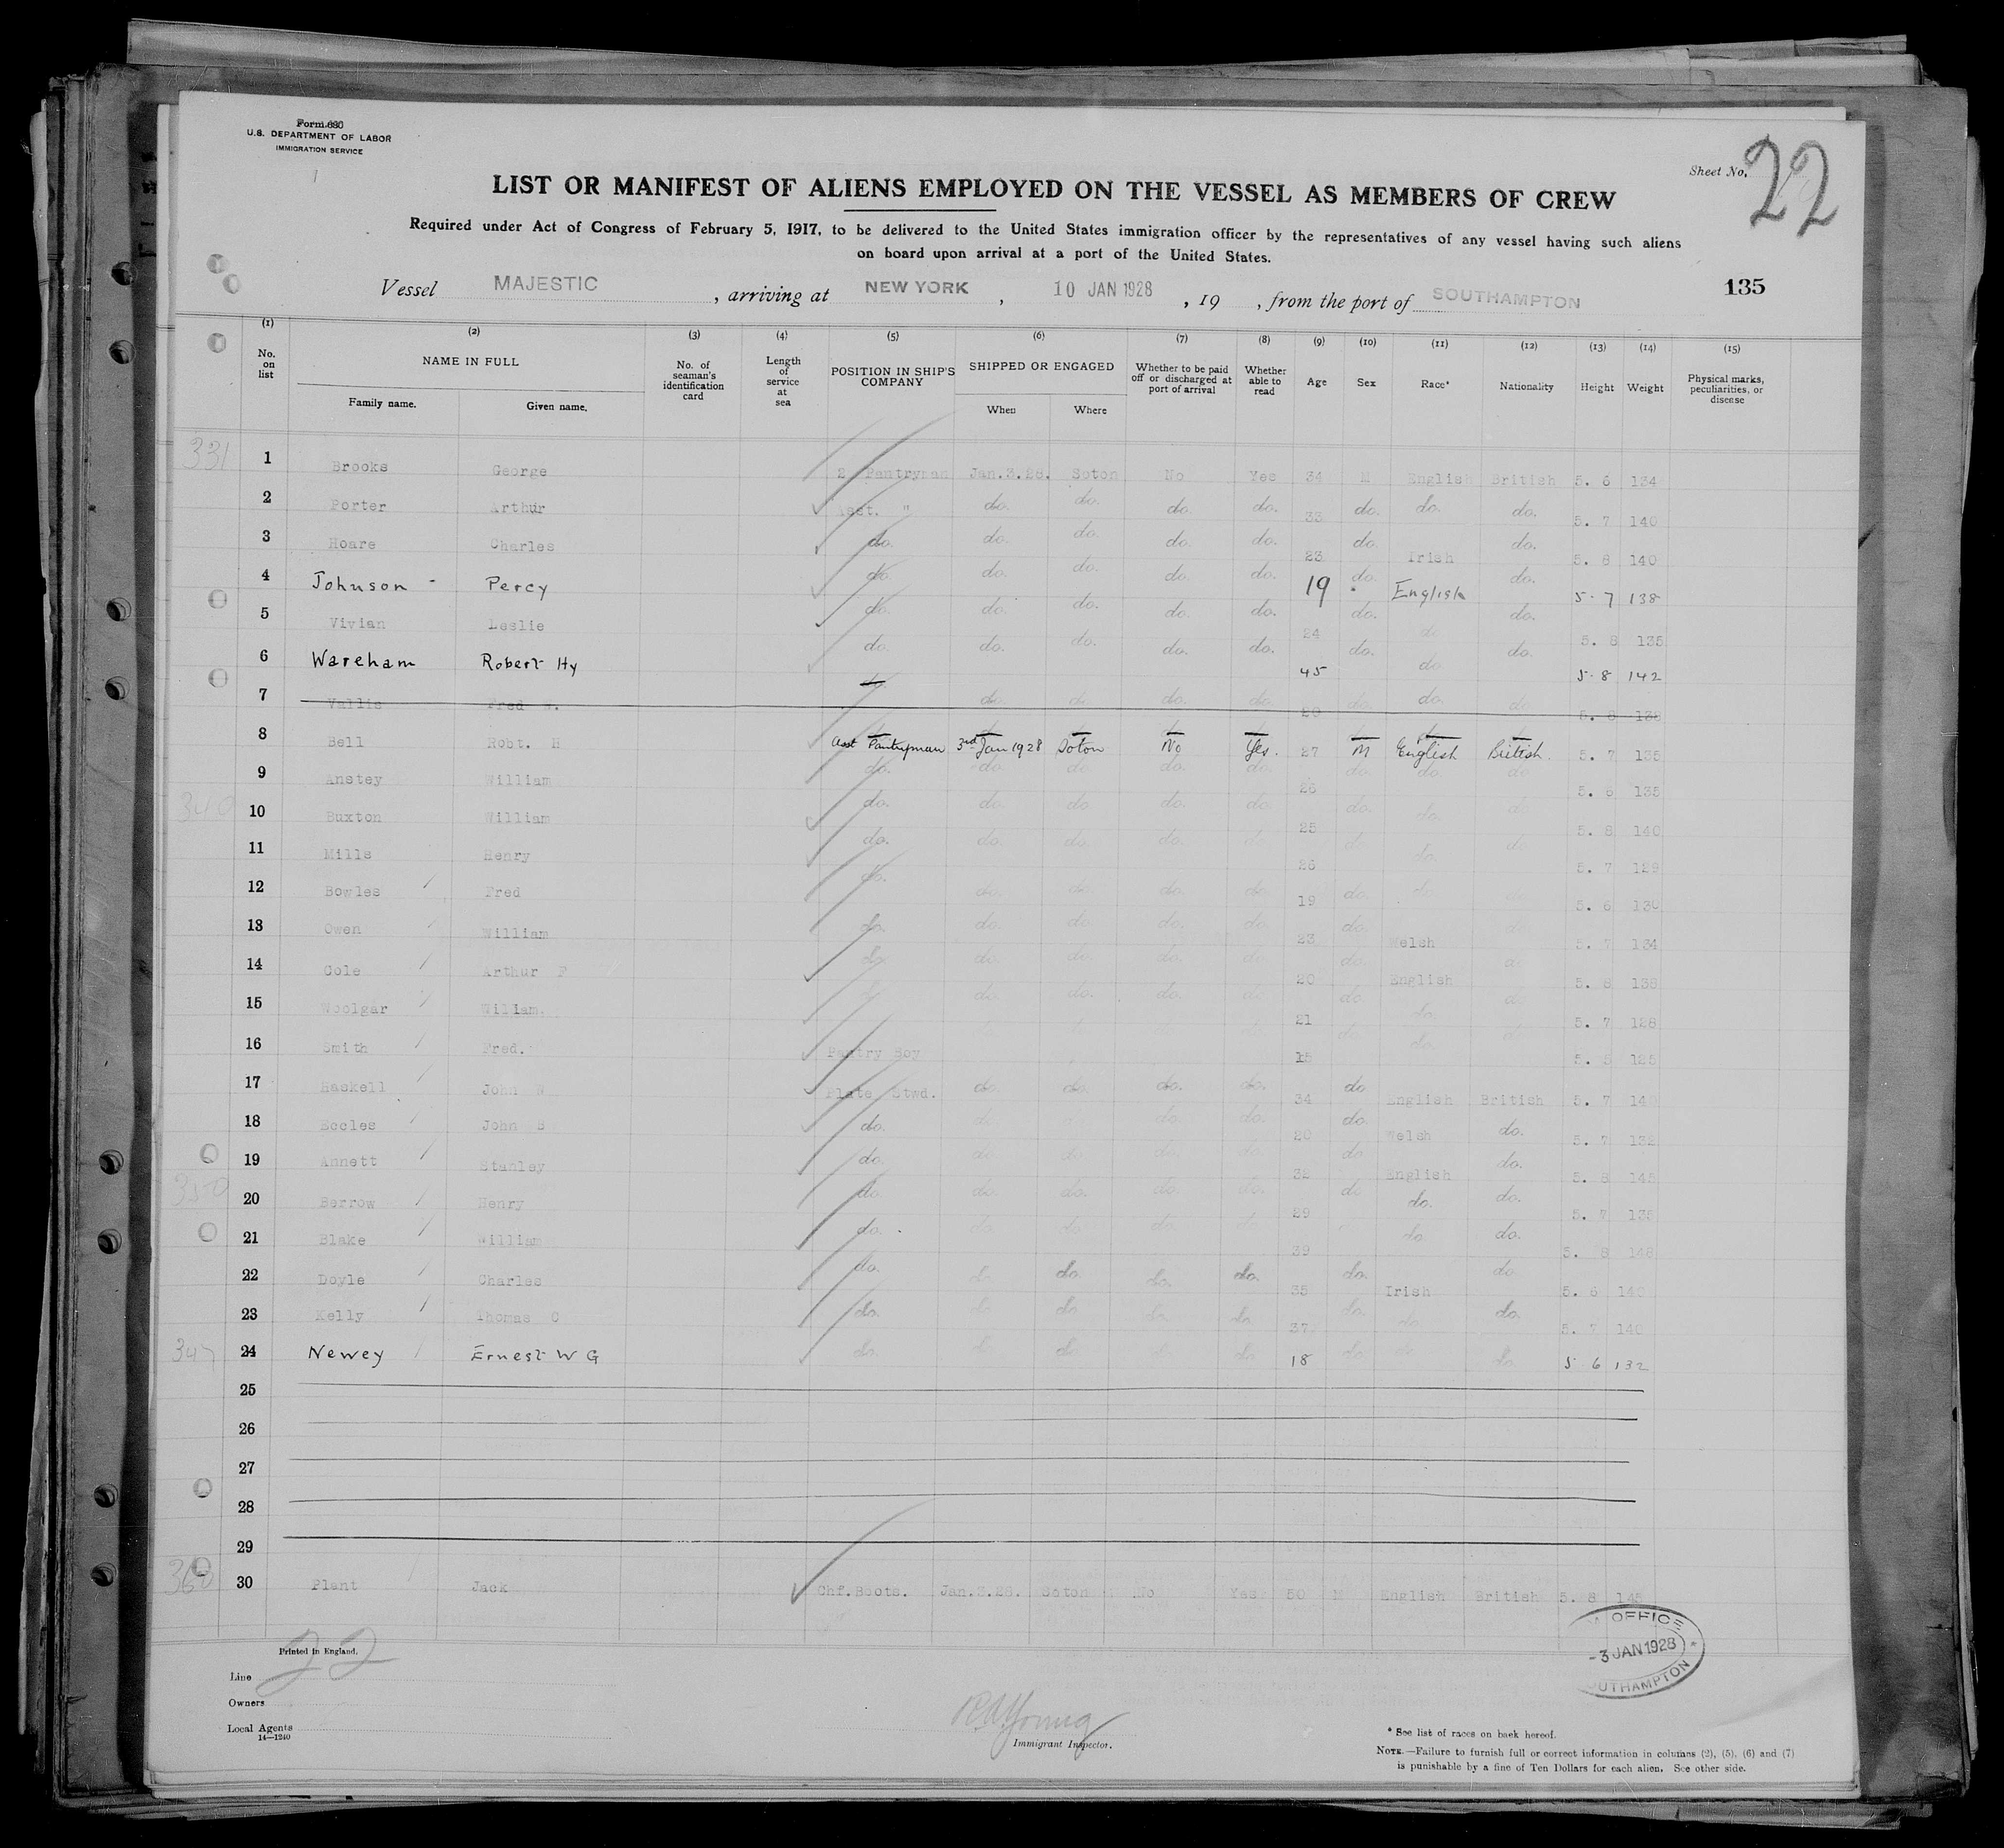 Form 680
U.S. DEPARTMENT OF LABOR
IMMIGRATION SERVICE
Sheet No. 22
LIST OR MANIFEST OF ALIENS EMPLOYED ON THE VESSEL AS MEMBERS OF CREW
Required under Act of Congress of February 5, 1917, to be delivered to the United States immigration officer by the representatives of any vessel having such aliens
on board upon arrival at a port of the United States.
Vessel MAJESTIC, arriving at NEW YORK, 10 JAN 1928, 19 , from the port of SOUTHAMPTON
135
(1) (2) (3) (4) (5) (6) (7) (8) (9) (10) (11) (12) (13) (14) (15)
No. on list NAME IN FULL Family name. Given name. No. of seaman's identification card Length of service at sea POSITION IN SHIP'S COMPANY SHIPPED OR ENGAGED When Where Whether to be paid off or discharged at port of arrival Whether able to read Age Sex Race* Nationality Height Weight Physical marks, peculiarities, or disease
331 1 Brooks George 2 Pantryman Jan.3.28. Soton No Yes 34 M English British 5. 6 134
2 Porter Arthur Asst. " do. do. do. do. 33 do. do. do. 5. 7 140
3 Hoare Charles do. do. do. do. do. 23 do. Irish do. 5. 8 140
4 Johnson - Percy do. do. do. do. do. 19 do. English do. 5. 7 138
5 Vivian Leslie do. do. do. do. do. 24 do. do do. 5. 8 135
6 Wareham Robert Hy do. do. do. do. do. 45 do. do do. 5. 8 142
7 Vallis Fred do. do. do. do. do. do. do
8 Bell Robt. H Asst Pantryman 3rd Jan 1928 Soton No Yes. 27 M English British. 5. 7 135
9 Anstey William do. do. do. do. do. 26 do do. do 5. 6 135
340 10 Buxton William do. do. do do. do. 25 do. do. 5. 8 140
11 Mills Henry do. do. do. do. do 26 do do. do 5. 7 129
12 Bowles Fred do. do. do. do. do. 19 do. 5. 6 130
13 Owen William do. do. do. do. do. 23 do. Welsh 5. 7 134
14 Cole Arthur F do. do. do. do. do. 20 do. English 5. 8 138
15 Woolgar William. do. do. do. do 21 do do. 5. 7 128
16 Smith Fred. Pantry Boy 15 do. 5. 5 125
17 Haskell John W Plate Stwd. do. do. do. do. 34 do English British 5. 7 140
18 Eccles John B do. do. do. 20 do. Welsh do. 5. 7 132
19 Annett Stanley do. do. do. do. do. 32 do English do. 5. 8 145
350 20 Barrow Henry do. do. do. do. do. 29 do do. do. 5. 7 135
21 Blake William do. do. do. do. 39 do. do. 5. 8 148
22 Doyle Charles do. do. do. do. do. 35 do. Irish do. 5. 6 140
23 Kelly Thomas C do. do do. do. do. 37 do. do. do. 5. 7 140
347 24 Newey Ernest W G do. do. do. do. do. 18 do. do. do. 5 6 132
25
26
27
28
29
360 30 Plant Jack Chf.Boots. Jan.3.28. Soton No Yes 50 M English British 5. 8 145
OFFICE
-3 JAN 1928 *
SOUTHAMPTON
Printed in England.
22
Line
Owners
Local Agents
14—1240
Immigrant Inspector.
* See list of races on back hereof.
NOTE.—Failure to furnish full or correct information in columns (2), (5), (6) and (7)
is punishable by a fine of Ten Dollars for each alien. See other side.